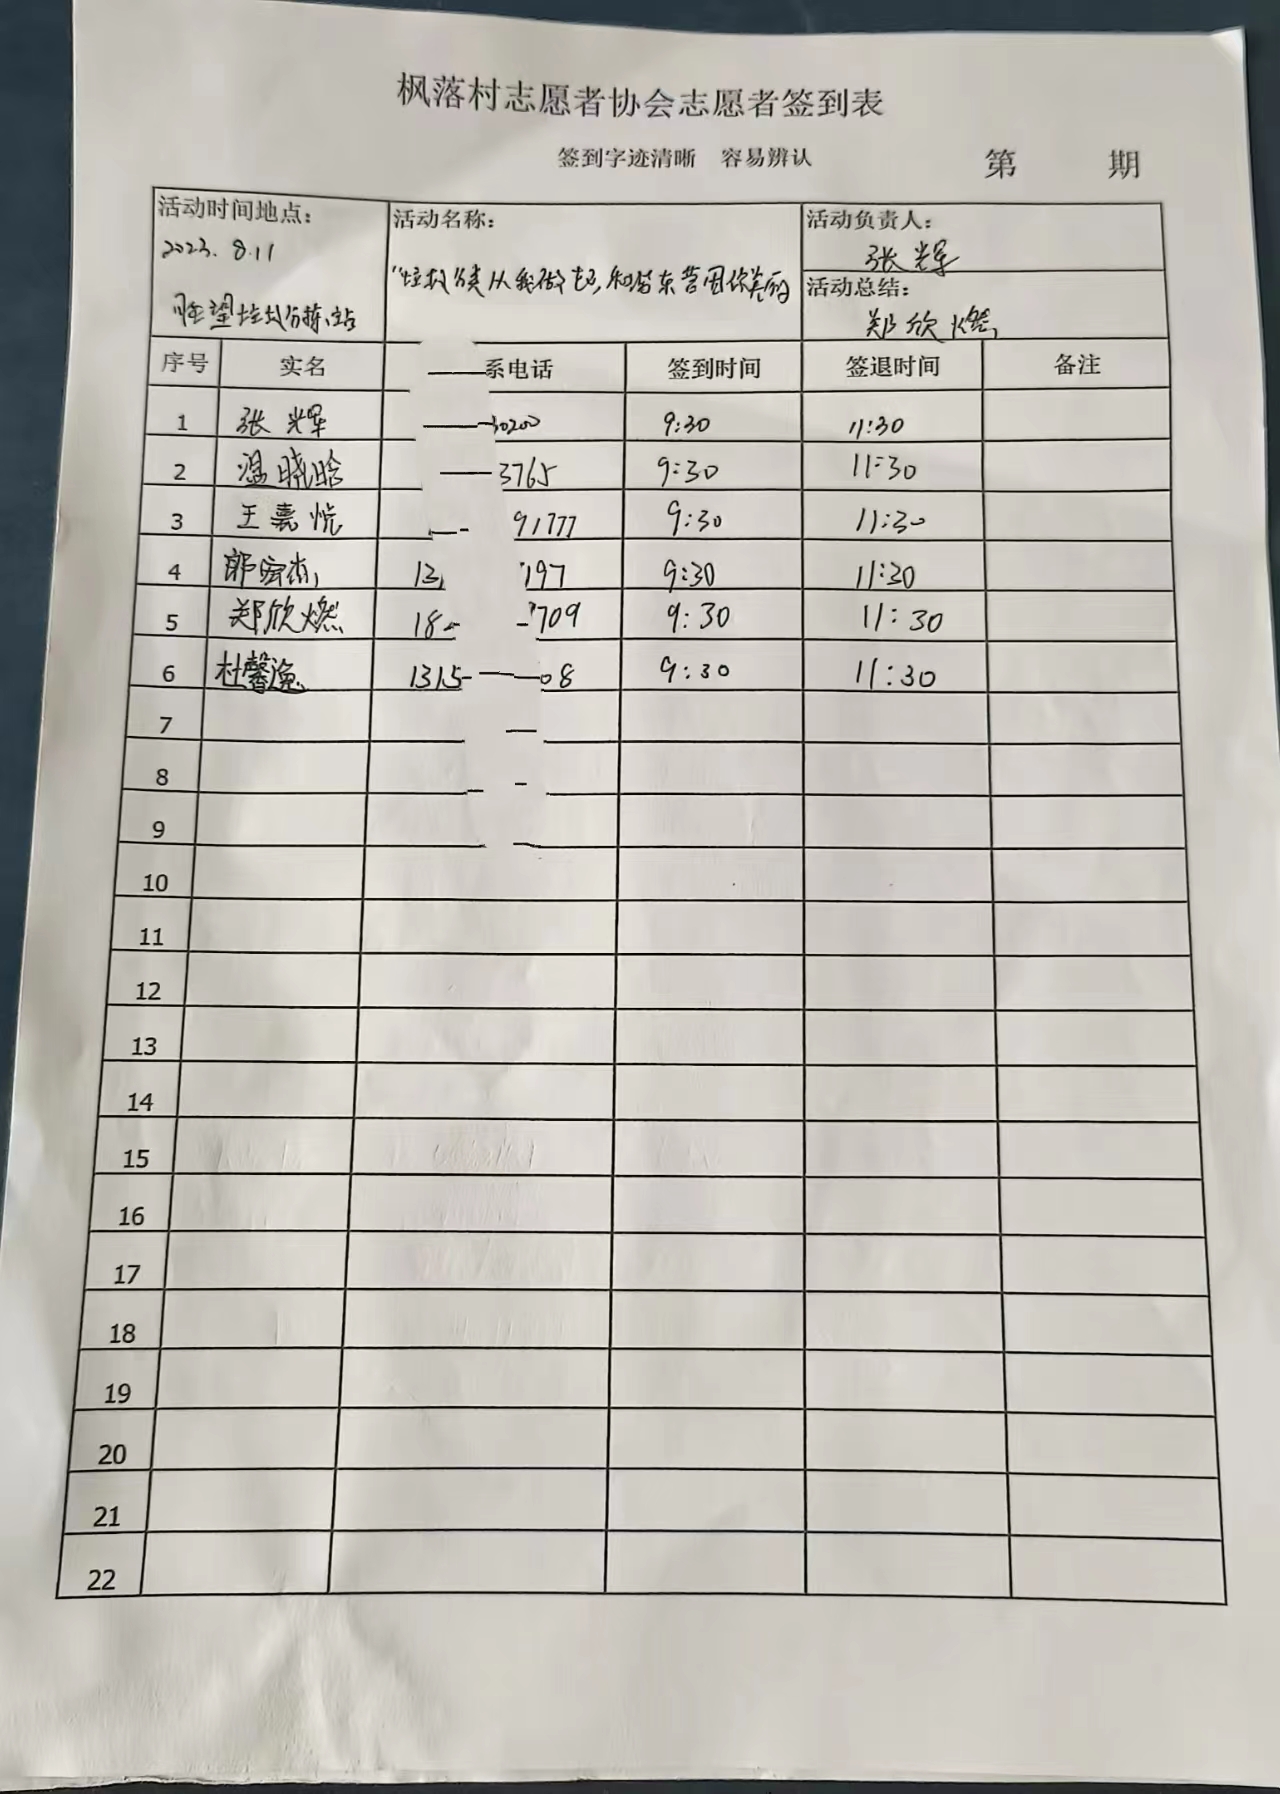 枫落村志愿者协会志愿者签到表
签到字迹清晰 容易辨认
第 期
活动时间地点：
2023.8.11
旺望垃圾分拣站
活动名称：
"垃圾分类从我做起,和谐东营因你美丽
活动负责人：
张光军
活动总结：
郑欣燃
序号 实名 系电话 签到时间 签退时间 备注
1 张光军 30200 9:30 11:30
2 温晓晗 3765 9:30 11:30
3 王嘉悦 91777 9:30 11:30
4 郭宏杰 13 197 9:30 11:30
5 郑欣燃 18 709 9:30 11:30
6 杜馨逸 1315 08 9:30 11:30
7
8
9
10
11
12
13
14
15
16
17
18
19
20
21
22